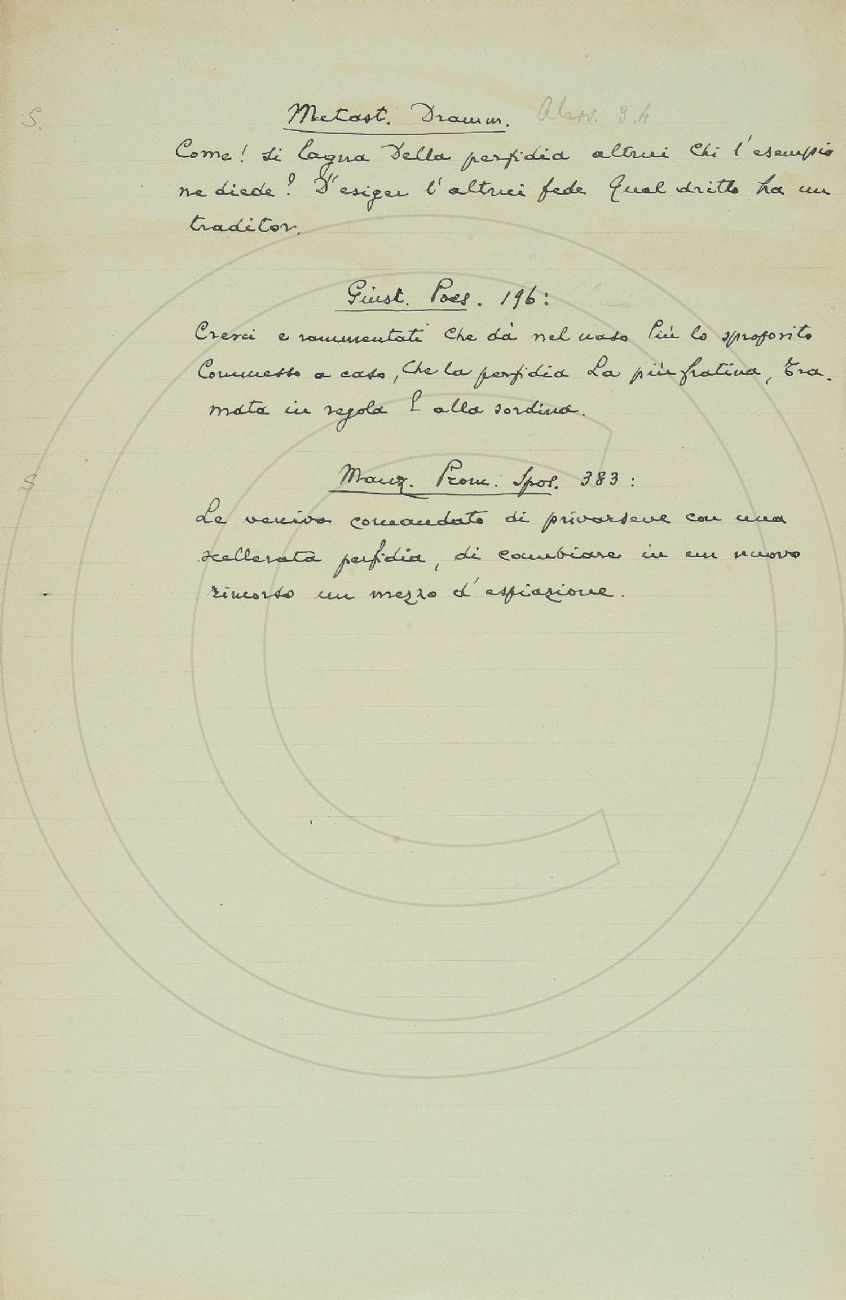 S. Metast. Dramm. Aless. 3.4
Come! Si lagna Della perfidia altrui Chi l'esempio
ne diede? D'esiger l'altrui fede Qual dritto ha un
traditor.
Giust. Poes. 196:
Cresci e rammentati Che dà nel naso Più lo sproposito
Commesso a caso, Che la perfidia La più fratina, Tra-
mata in regola E alla sordina.
S Manz. Prom. Spos. 383:
Le veniva comandato di privarseve con una
scellerata perfidia, di cambiare in un nuovo
rimorso un mezzo d'espiazione.